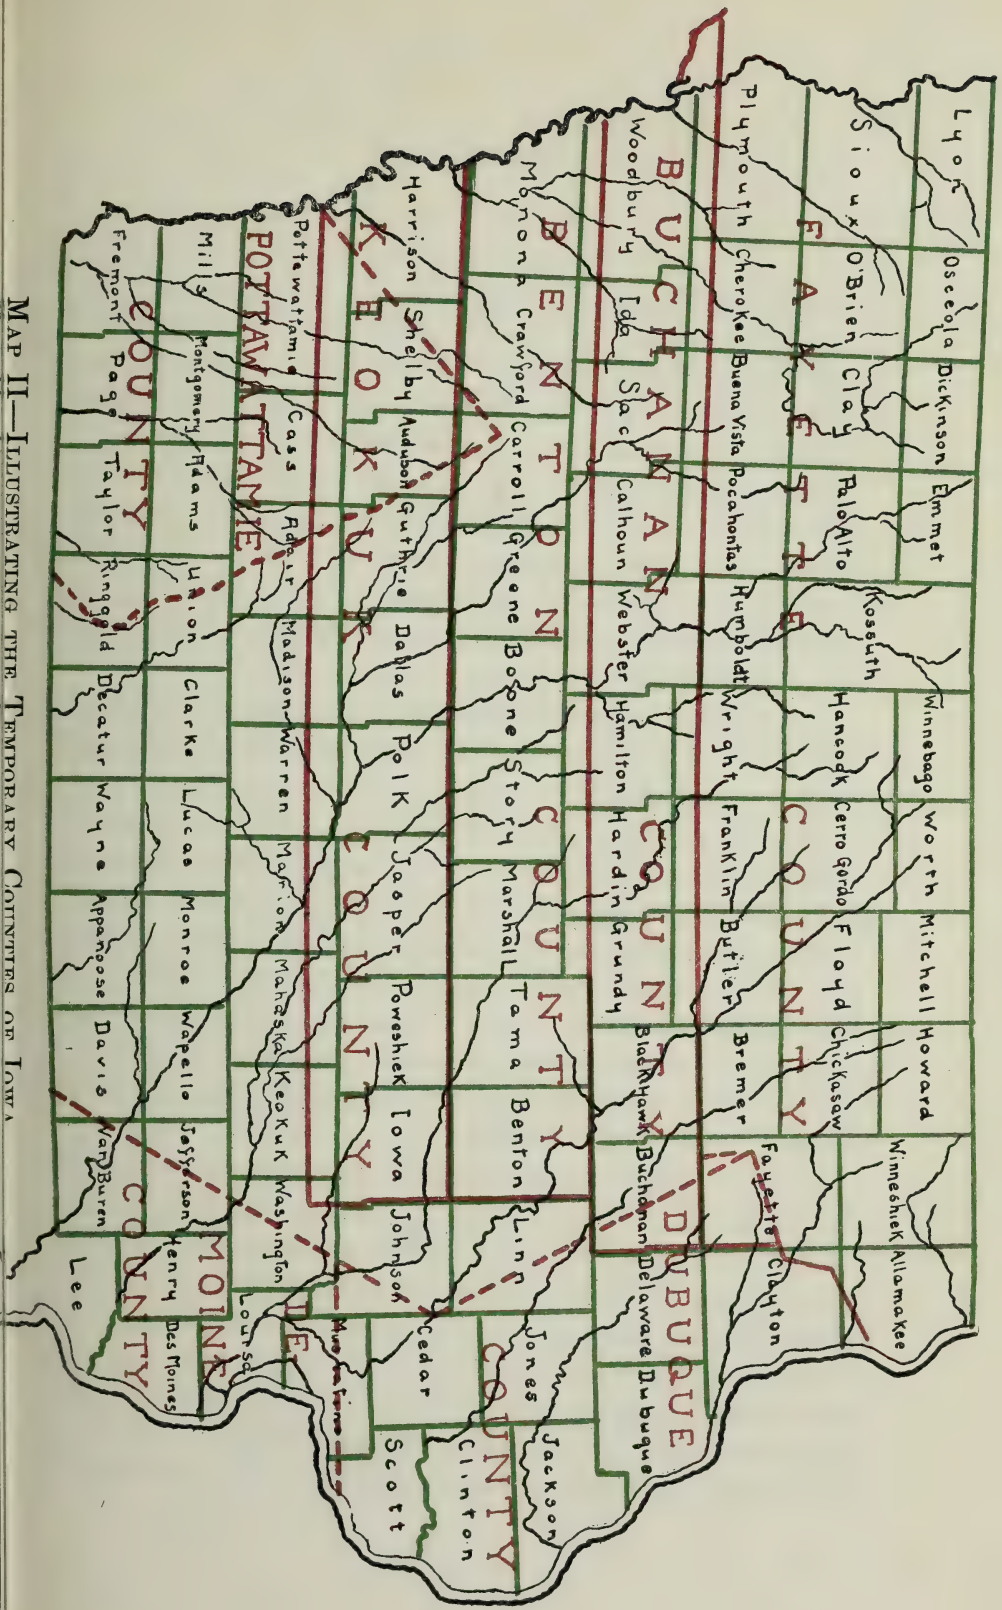 Lyon
Osceola
Dickinson
Emmet
Kossuth
Winnebago
Worth
Mitchell
Howard
Winneshiek
Allamakee
Sioux
O'Brien
Clay
Palo Alto
Hancock
Cerro Gordo
Floyd
Chickasaw
FAYETTE COUNTY
Plymouth
Cherokee
Buena Vista
Pocahontas
Humboldt
Wright
Franklin
Butler
Bremer
Fayette
Clayton
BUCHANAN COUNTY
DUBUQUE
COUNTY
Woodbury
Ida
Sac
Calhoun
Webster
Hamilton
Hardin
Grundy
Black Hawk
Buchanan
Delaware
Dubuque
BENTON COUNTY
Monona
Crawford
Carroll
Greene
Boone
Story
Marshall
Tama
Benton
Linn
Jones
Jackson
Harrison
Shelby
Audubon
Guthrie
Dallas
Polk
Jasper
Poweshiek
Iowa
Johnson
Cedar
Clinton
Scott
KEOKUK COUNTY
Pottawattamie
Cass
Adair
Madison
Warren
Marion
Mahaska
Keokuk
Washington
Muscatine
Louisa
POTTAWATTAMIE
COUNTY
DE
MOINE
COUNTY
Mills
Montgomery
Adams
Union
Clarke
Lucas
Monroe
Wapello
Jefferson
Henry
Des Moines
Fremont
Page
Taylor
Ringgold
Decatur
Wayne
Appanoose
Davis
Van Buren
Lee
MAP II—ILLUSTRATING THE TEMPORARY COUNTIES OF IOWA